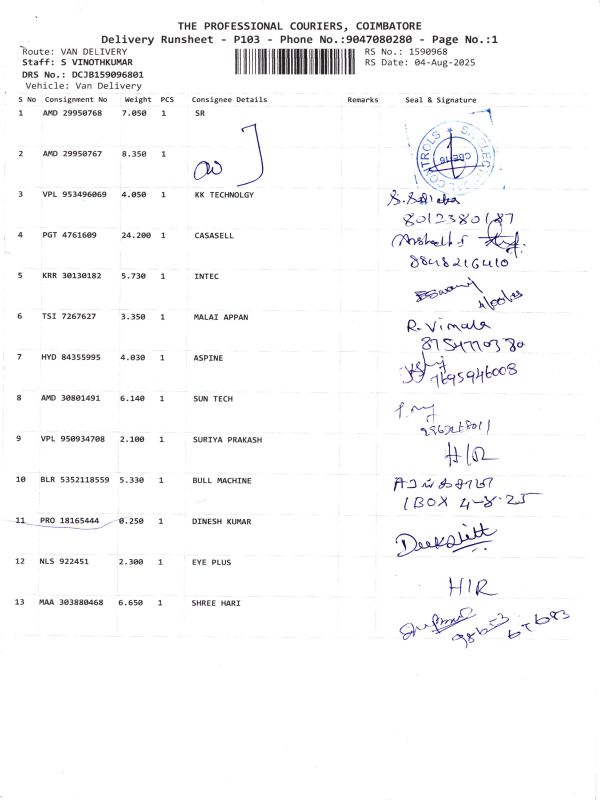 THE PROFESSIONAL COURIERS, COIMBATORE
Delivery Runsheet - P103 - Phone No.:9047080280 - Page No.:1
Route: VAN DELIVERY RS No.: 1590968
Staff: S VINOTHKUMAR RS Date: 04-Aug-2025
DRS No.: DCJB159096801
Vehicle: Van Delivery
S No Consignment No Weight PCS Consignee Details Remarks Seal & Signature
1 AMD 29950768 7.050 1 SR
2 AMD 29950767 8.350 1
3 VPL 953496069 4.050 1 KK TECHNOLGY
8012380187
4 PGT 4761609 24.200 1 CASASELL
8848216410
5 KRR 30130182 5.730 1 INTEC
6 TSI 7267627 3.350 1 MALAI APPAN R. Vimala
8754770380
7 HYD 84355995 4.030 1 ASPINE
7695946008
8 AMD 30801491 6.140 1 SUN TECH
9 VPL 950934708 2.100 1 SURIYA PRAKASH H/R
10 BLR 5352118559 5.330 1 BULL MACHINE
1 BOX 4-8-25
11 PRO 18165444 0.250 1 DINESH KUMAR
12 NLS 922451 2.300 1 EYE PLUS H/R
13 MAA 303880468 6.650 1 SHREE HARI